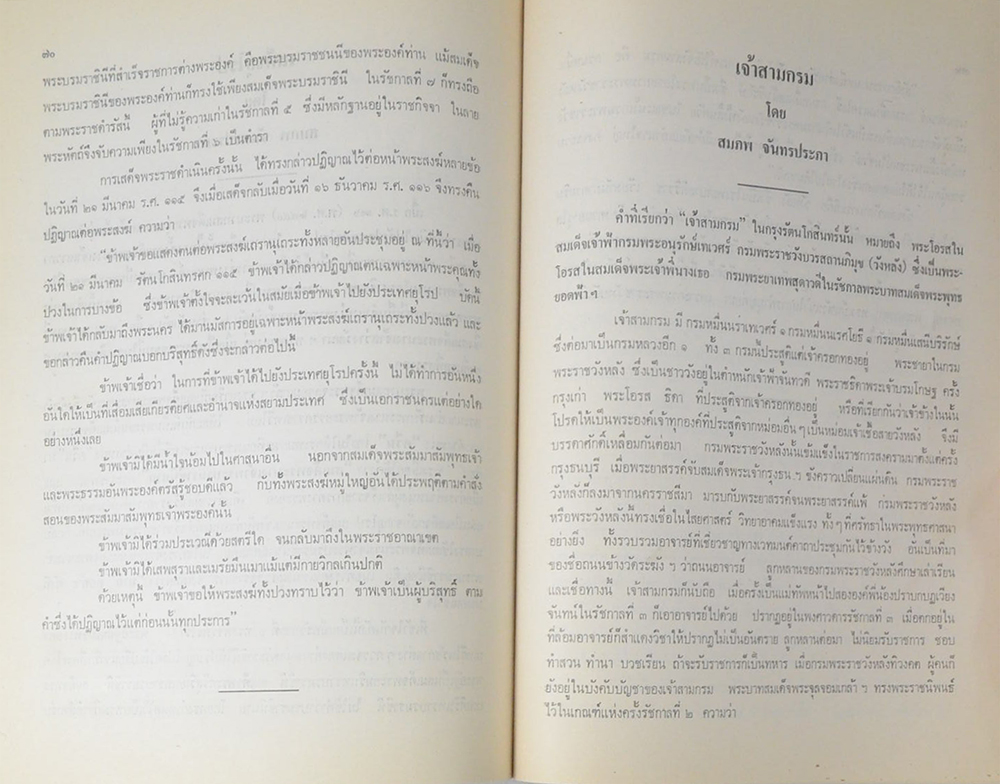 ๗๐
พระบรมราชินีที่สำเร็จราชการต่างพระองค์ คือพระบรมราชชนนีของพระองค์ท่าน แม้สมเด็จ
พระบรมราชินีของพระองค์ท่านก็ทรงใช้เพียงสมเด็จพระบรมราชินี ในรัชกาลที่ ๗ ก็ทรงถือ
ตามพระราชดำรัสนี้ ผู้ที่ไม่รู้ความเก่าในรัชกาลที่ ๕ ซึ่งมีหลักฐานอยู่ในราชกิจจา ในลาย
พระหัตถ์จึงจับความเพียงในรัชกาลที่ ๖ เป็นตำรา
การเสด็จพระราชดำเนินครั้งนั้น ได้ทรงกล่าวปฏิญาณไว้ต่อหน้าพระสงฆ์หลายข้อ
ในวันที่ ๒๑ มีนาคม ร.ศ. ๑๑๕ จึงเมื่อเสด็จกลับเมื่อวันที่ ๑๖ ธันวาคม ร.ศ. ๑๑๖ จึงทรงคืน
ปฏิญาณต่อพระสงฆ์ ความว่า
“ข้าพเจ้าขอแสดงตนต่อพระสงฆ์เถรานุเถระทั้งหลายอันประชุมอยู่ ณ ที่นี้ว่า เมื่อ
วันที่ ๒๑ มีนาคม รัตนโกสินทรศก ๑๑๕ ข้าพเจ้าได้กล่าวปฏิญาณตนเฉพาะหน้าพระคุณทั้ง
ปวงในการบางข้อ ซึ่งข้าพเจ้าตั้งใจจะละเว้นในสมัยเมื่อข้าพเจ้าไปยังประเทศยุโรป บัดนี้
ข้าพเจ้าได้กลับมาถึงพระนคร ได้มานมัสการอยู่เฉพาะหน้าพระสงฆ์เถรานุเถระทั้งปวงแล้ว และ
ขอกล่าวคืนคำปฏิญาณบอกบริสุทธิ์ดังซึ่งจะกล่าวต่อไปนี้
ข้าพเจ้าเชื่อว่า ในการที่ข้าพเจ้าได้ไปยังประเทศยุโรปครั้งนี้ ไม่ได้ทำการอันหนึ่ง
อันใดให้เป็นที่เสื่อมเสียเกียรติยศและอำนาจแห่งสยามประเทศ ซึ่งเป็นเอกราชนครแต่อย่างใด
อย่างหนึ่งเลย
ข้าพเจ้ามิได้มีน้ำใจน้อมไปในศาสนาอื่น นอกจากสมเด็จพระสัมมาสัมพุทธเจ้า
และพระธรรมอันพระองค์ตรัสรู้ชอบดีแล้ว กับทั้งพระสงฆ์หมู่ใหญ่อันได้ประพฤติตามคำสั่ง
สอนของพระสัมมาสัมพุทธเจ้าพระองค์นั้น
ข้าพเจ้ามิได้ร่วมประเวณีด้วยสตรีใด จนกลับมาถึงในพระราชอาณาเขต
ข้าพเจ้ามิได้เสพสุราและเมรัยมึนเมาแม้แต่มีกายวิกลเกินปกติ
ด้วยเหตุนี้ ข้าพเจ้าขอให้พระสงฆ์ทั้งปวงทราบไว้ว่า ข้าพเจ้าเป็นผู้บริสุทธิ์ ตาม
คำซึ่งได้ปฏิญาณไว้แต่ก่อนนั้นทุกประการ”
เจ้าสามกรม
โดย
สมภพ จันทรประภา
คำที่เรียกว่า “เจ้าสามกรม” ในกรุงรัตนโกสินทร์นั้น หมายถึง พระโอรสใน
สมเด็จเจ้าฟ้ากรมพระอนุรักษ์เทเวศร์ กรมพระราชวังบวรสถานภิมุข (วังหลัง) ซึ่งเป็นพระ-
โอรสในสมเด็จพระเจ้าพี่นางเธอ กรมพระยาเทพสุดาวดีในรัชกาลพระบาทสมเด็จพระพุทธ
ยอดฟ้า ฯ
เจ้าสามกรม มี กรมหมื่นนราเทเวศร์ ๑ กรมหมื่นนเรศโยธี ๑ กรมหมื่นเสนีบริรักษ์
ซึ่งต่อมาเป็นกรมหลวงอีก ๑ ทั้ง ๓ กรมนี้ประสูติแต่เจ้าครอกทองอยู่ พระชายาในกรม
พระราชวังหลัง ซึ่งเป็นชาววังอยู่ในตำหนักเจ้าฟ้าจันทวดี พระราชธิดาพระเจ้าบรมโกษฐ ครั้ง
กรุงเก่า พระโอรส ธิดา ที่ประสูติจากเจ้าครอกทองอยู่ หรือที่เรียกกันว่าเจ้าข้างในนั้น
โปรดให้เป็นพระองค์เจ้าทุกองค์ที่ประสูติจากหม่อมอื่นๆ เป็นหม่อมเจ้าเชื้อสายวังหลัง จึงมี
บรรดาศักดิ์เหลื่อมกันต่อมา กรมพระราชวังหลังนั้นเข้มแข็งในราชการสงครามมาตั้งแต่ครั้ง
กรุงธนบุรี เมื่อพระยาสรรค์จับสมเด็จพระเจ้ากรุงธน ฯ ขังคราวเปลี่ยนแผ่นดิน กรมพระราช
วังหลังก็ลงมาจากนครราชสีมา มารบกับพระยาสรรค์จนพระยาสรรค์แพ้ กรมพระราชวังหลัง
หรือพระวังหลังนี้ทรงเชื่อในไสยศาสตร์ วิทยาอาคมแข็งแรง ทั้ง ๆ ที่ศรัทธาในพระพุทธศาสนา
อย่างยิ่ง ทั้งรวบรวมอาจารย์ที่เชี่ยวชาญทางเวทมนต์คาถาประชุมกันไว้ข้างวัง อันเป็นที่มา
ของชื่อถนนข้างวัดระฆัง ฯ ว่าถนนอาจารย์ ลูกหลานของกรมพระราชวังหลังศึกษาเล่าเรียน
และเชื่อทางนี้ เจ้าสามกรมก็นับถือ เมื่อครั้งเป็นแม่ทัพหน้าไปสององค์พี่น้องปราบกบฏเวียง
จันทน์ในรัชกาลที่ ๓ ก็เอาอาจารย์ไปด้วย ปรากฏอยู่ในพงศาวดารรัชกาลที่ ๓ เมื่อตกอยู่ใน
ที่ล้อมอาจารย์ก็สำแดงวิชาให้ปรากฏไม่เป็นอันตราย ลูกหลานต่อมา ไม่นิยมรับราชการ ชอบ
ทำสวน ทำนา บวชเรียน ถ้าจะรับราชการก็เป็นทหาร เมื่อกรมพระราชวังหลังทิวงคต ผู้คนก็
ยังอยู่ในบังคับบัญชาของเจ้าสามกรม พระบาทสมเด็จพระจุลจอมเกล้า ฯ ทรงพระราชนิพนธ์
ไว้ในเกณฑ์แห่งครั้งรัชกาลที่ ๒ ความว่า